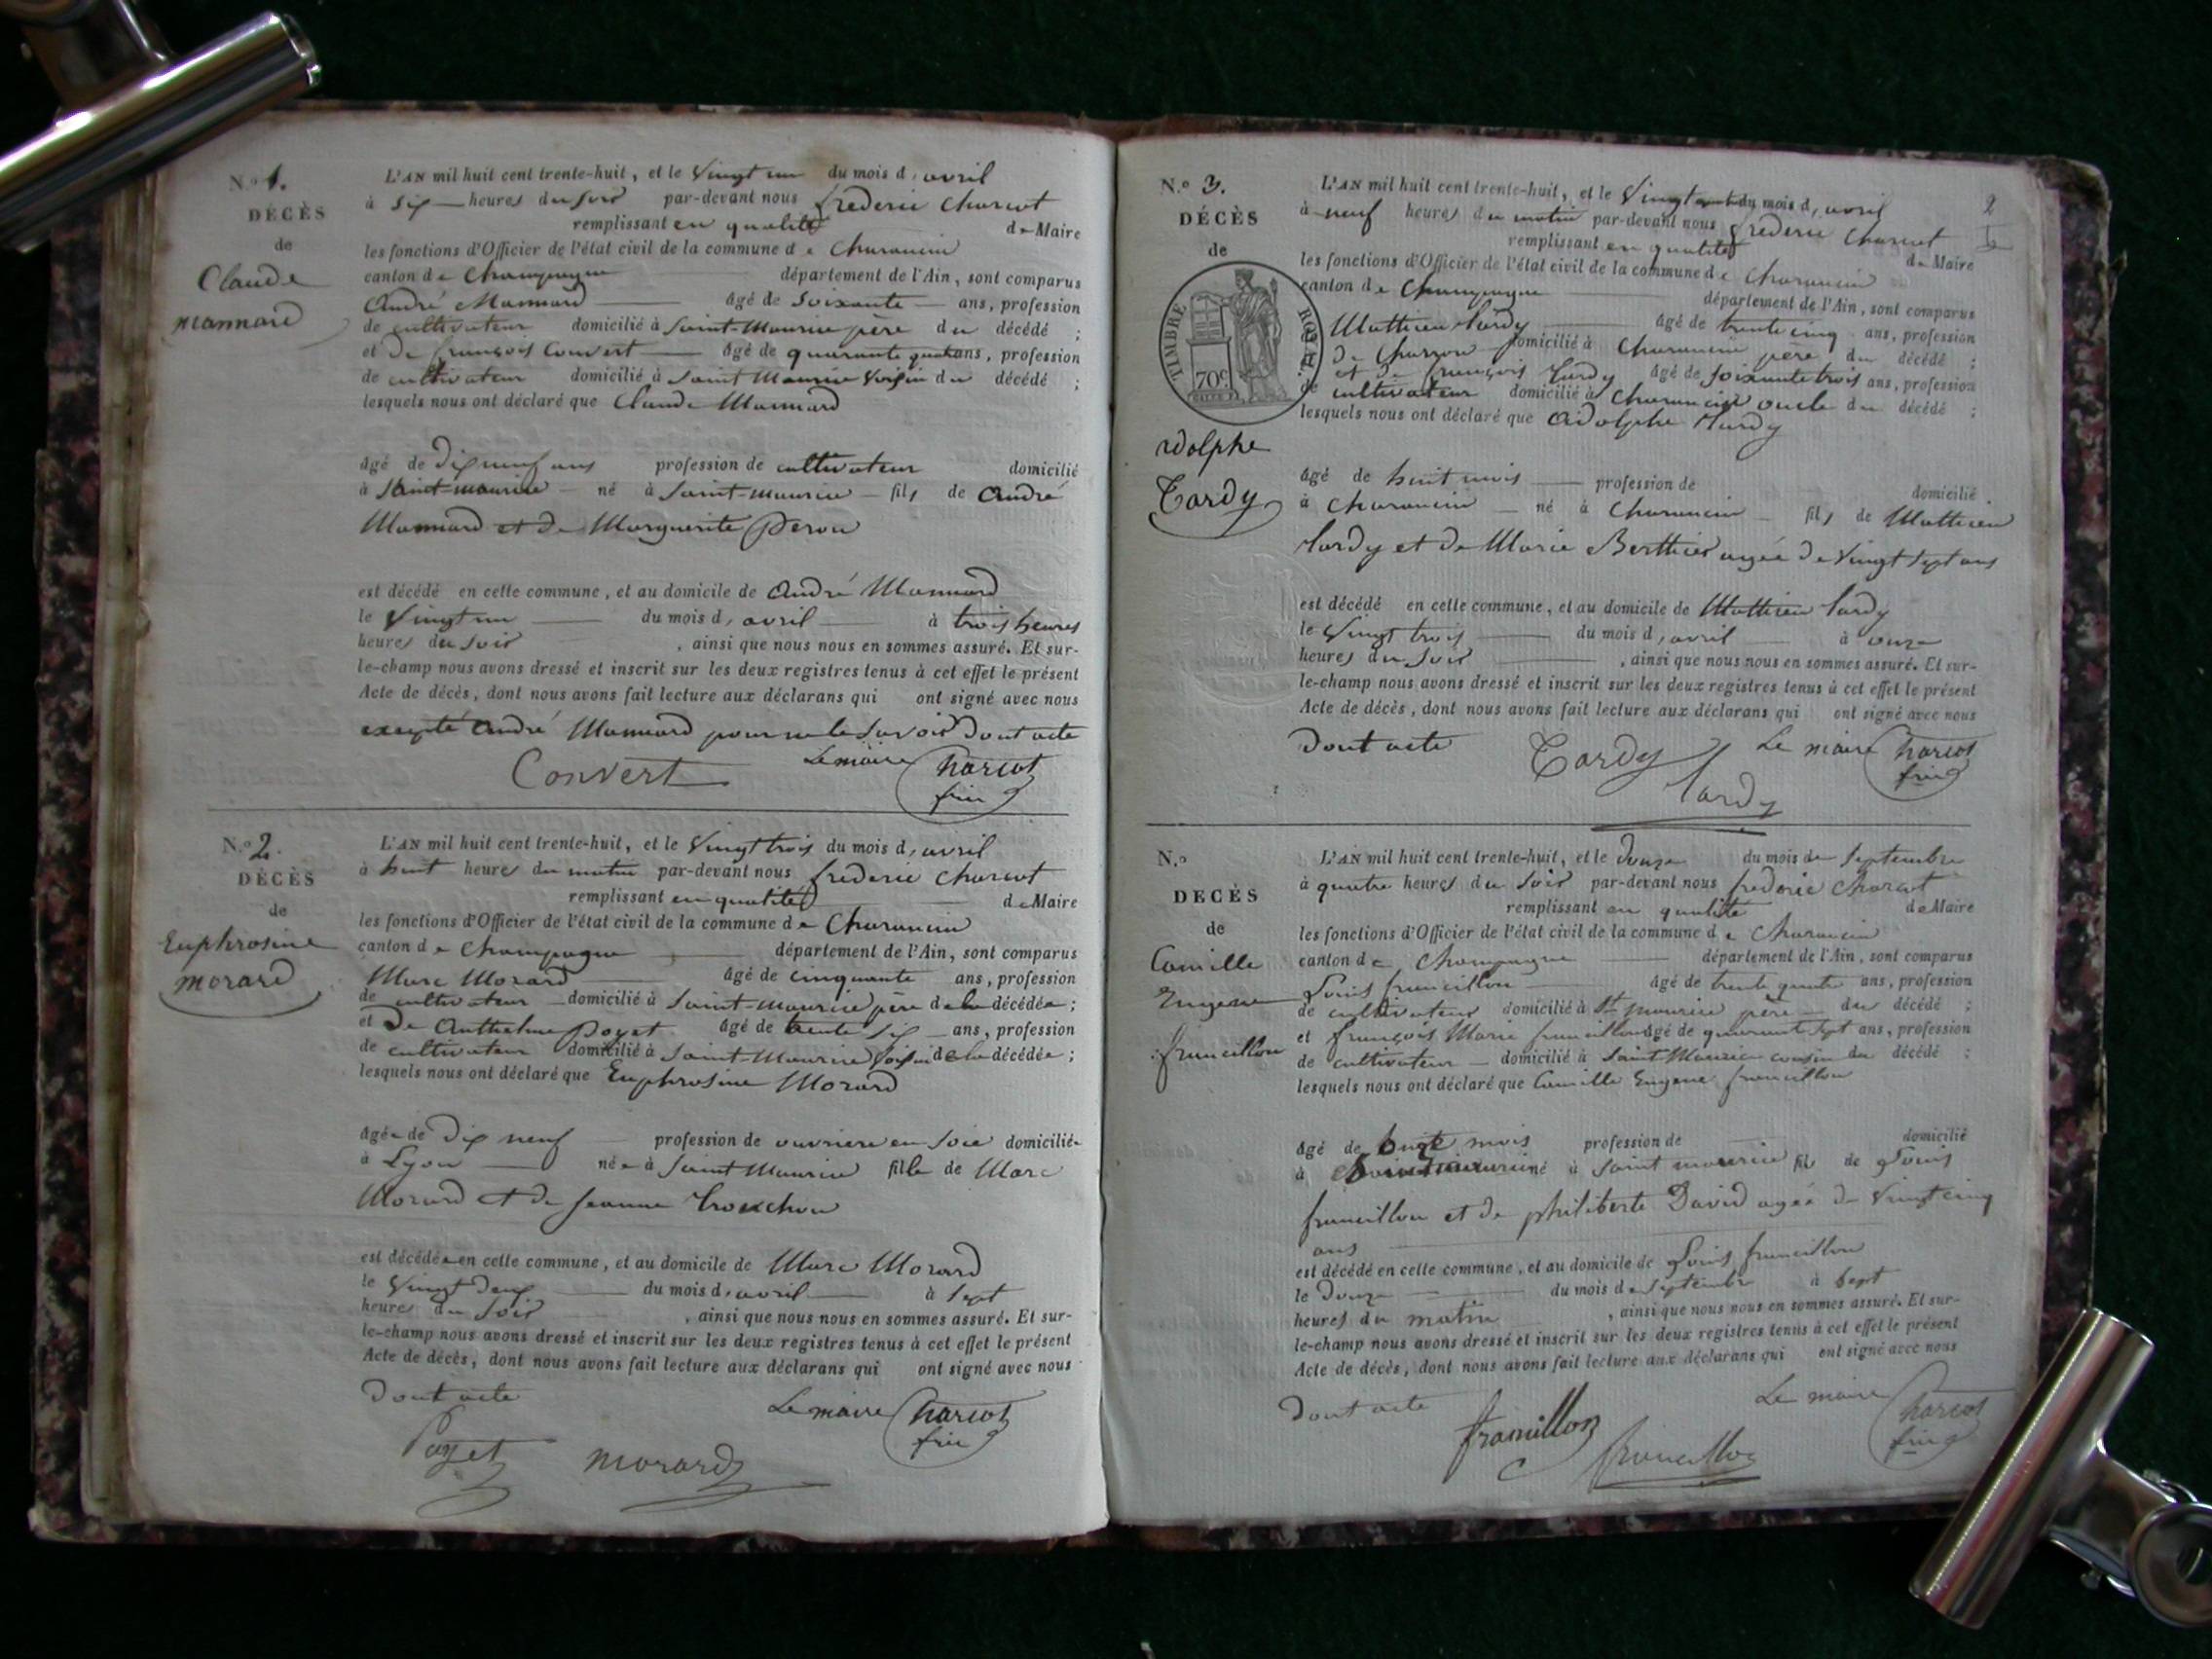 N.º 1.
DÉCÈS
de
Claude
Mannard
L'AN mil huit cent trente-huit, et le Vingt un du mois d, avril
à six heures du soir par-devant nous frederic Charcot
remplissant en qualité de Maire
les fonctions d'Officier de l'état civil de la commune de Charancin
canton de Champagne département de l'Ain, sont comparus
André Mannard âgé de soixante ans, profession
de cultivateur domicilié à Saint-Maurice père du décédé ;
et de françois Convert âgé de quarante quatre ans, profession
de cultivateur domicilié à Saint Maurice Voisin du décédé ;
lesquels nous ont déclaré que Claude Mannard
âgé de dix neuf ans profession de cultivateur domicilié
à Saint-maurice né à Saint-maurice fils de André
Mannard et de Marguerite Peron
est décédé en cette commune, et au domicile de André Mannard
le Vingt un du mois d, avril à trois heures
heures du soir , ainsi que nous nous en sommes assuré. Et sur-
le-champ nous avons dressé et inscrit sur les deux registres tenus à cet effet le présent
Acte de décès, dont nous avons fait lecture aux déclarans qui ont signé avec nous
excepté André Mannard pour ne le savoir Dont acte
Convert Le maire Charcot
fric
N.º 2.
DÉCÈS
de
Euphrosine
morard
L'AN mil huit cent trente-huit, et le Vingt trois du mois d, avril
à huit heures du matin par-devant nous frederic Charcot
remplissant en qualité de Maire
les fonctions d'Officier de l'état civil de la commune de Charancin
canton de Champagne département de l'Ain, sont comparus
Marc Morard âgé de cinquante ans, profession
de cultivateur domicilié à Saint-Maurice père de la décédée ;
et de Anthelme Poyet âgé de trente six ans, profession
de cultivateur domicilié à Saint-Maurice Voisin de la décédée ;
lesquels nous ont déclaré que Euphrosine Morard
âgée de dix neuf profession de ouvriere en soie domiciliée
à Lyon née à Saint Maurice fille de Marc
Morard et de Jeanne Trouchon
est décédée en cette commune, et au domicile de Marc Morard
le Vingt deux du mois d, avril à Sept
heures du soir , ainsi que nous nous en sommes assuré. Et sur-
le-champ nous avons dressé et inscrit sur les deux registres tenus à cet effet le présent
Acte de décès, dont nous avons fait lecture aux déclarans qui ont signé avec nous
Dont acte Le maire Charcot
fric
Poyet morard
2
N.º 3.
DÉCÈS
de
TIMBRE ROYAL
70c
adolphe
Tardy
L'AN mil huit cent trente-huit, et le Vingt du mois d, avril
à neuf heures du matin par-devant nous frederic Charcot
remplissant en qualité de Maire
les fonctions d'Officier de l'état civil de la commune de Charancin
canton de Champagne département de l'Ain, sont comparus
Mathieu Tardy âgé de trente cinq ans, profession
de Charron domicilié à Charancin père du décédé ;
et de françois Tardy âgé de soixante trois ans, profession
de cultivateur domicilié à Charancin oncle du décédé ;
lesquels nous ont déclaré que Adolphe Tardy
âgé de huit mois profession de domicilié
à Charancin né à Charancin fils de Mathieu
Tardy et de Marie Berthier agée de Vingt sept ans
est décédé en cette commune, et au domicile de Mathieu Tardy
le Vingt trois du mois d, avril à onze
heures du soir , ainsi que nous nous en sommes assuré. Et sur-
le-champ nous avons dressé et inscrit sur les deux registres tenus à cet effet le présent
Acte de décès, dont nous avons fait lecture aux déclarans qui ont signé avec nous
Dont acte Tardy Le maire Charcot
fric
Tardy
N.º
DÉCÈS
de
Camille
Eugene
francillon
L'AN mil huit cent trente-huit, et le douze du mois de Septembre
à quatre heures du soir par-devant nous frederic Charcot
remplissant en qualité de Maire
les fonctions d'Officier de l'état civil de la commune de Charancin
canton de Champagne département de l'Ain, sont comparus
Louis francillon âgé de trente quatre ans, profession
de cultivateur domicilié à St maurice père du décédé ;
et françois Marie francillon âgé de quarante sept ans, profession
de cultivateur domicilié à Saint Maurice cousin du décédé ;
lesquels nous ont déclaré que Camille Eugene francillon
âgé de onze mois profession de domicilié
à né à Saint maurice fils de Louis
francillon et de philiberte David agée de Vingt cinq
ans
est décédé en cette commune, et au domicile de Louis francillon
le douze du mois de Septembre à Sept
heures du matin , ainsi que nous nous en sommes assuré. Et sur-
le-champ nous avons dressé et inscrit sur les deux registres tenus à cet effet le présent
Acte de décès, dont nous avons fait lecture aux déclarans qui ont signé avec nous
Dont acte Le maire Charcot
fric
francillon francillon